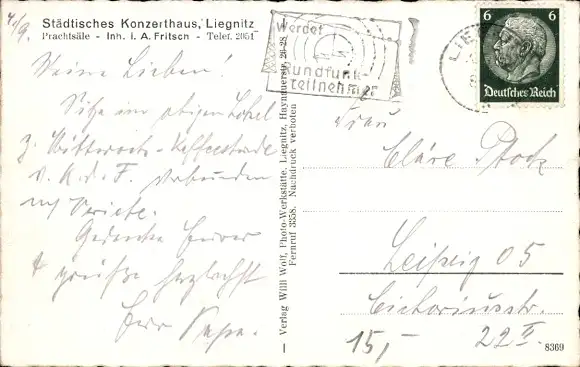 4/9.
Städtisches Konzerthaus, Liegnitz
Prachtsäle - Inh. i. A. Fritsch - Telef. 2051
Meine Lieben!
Sitze im obigen Lokal
z. Mittwoch-Kaffeestunde
v. K. d. F. verbunden
m/ Variete.
Gedenke Eurer
& grüße herzlichst
Euer Papa.
Verlag Willi Wolf, Photo-Werkstätte, Liegnitz, Haynauerstr. 26-28
Fernruf 3358. Nachdruck verboten
Werdet
Rundfunk-
teilnehmer
6 6
Deutsches Reich
Frau
Cläre Stock
Leipzig O 5
22 II
15,-
8369